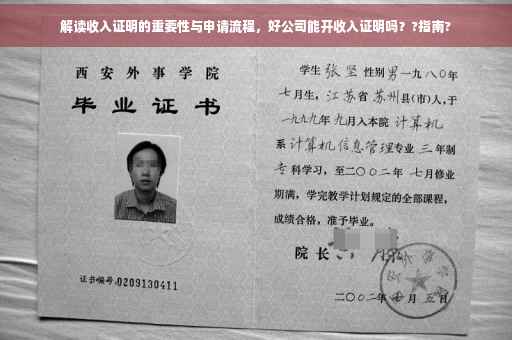 解读收入证明的重要性与申请流程，好公司能开收入证明吗？?指南?
西安外事学院
毕业证书
证书编号:0209130411
学生 张坚 性别 男 一九八〇年
七月生，江苏省 苏州县(市)人,于
一九九九年 九月入本院 计算机
系 计算机信息管理专业 三 年制
专科学习，至二〇〇二年 七月修业
期满，学完教学计划规定的全部课程，
成绩合格，准予毕业。
院长
二〇〇二年 月 五日